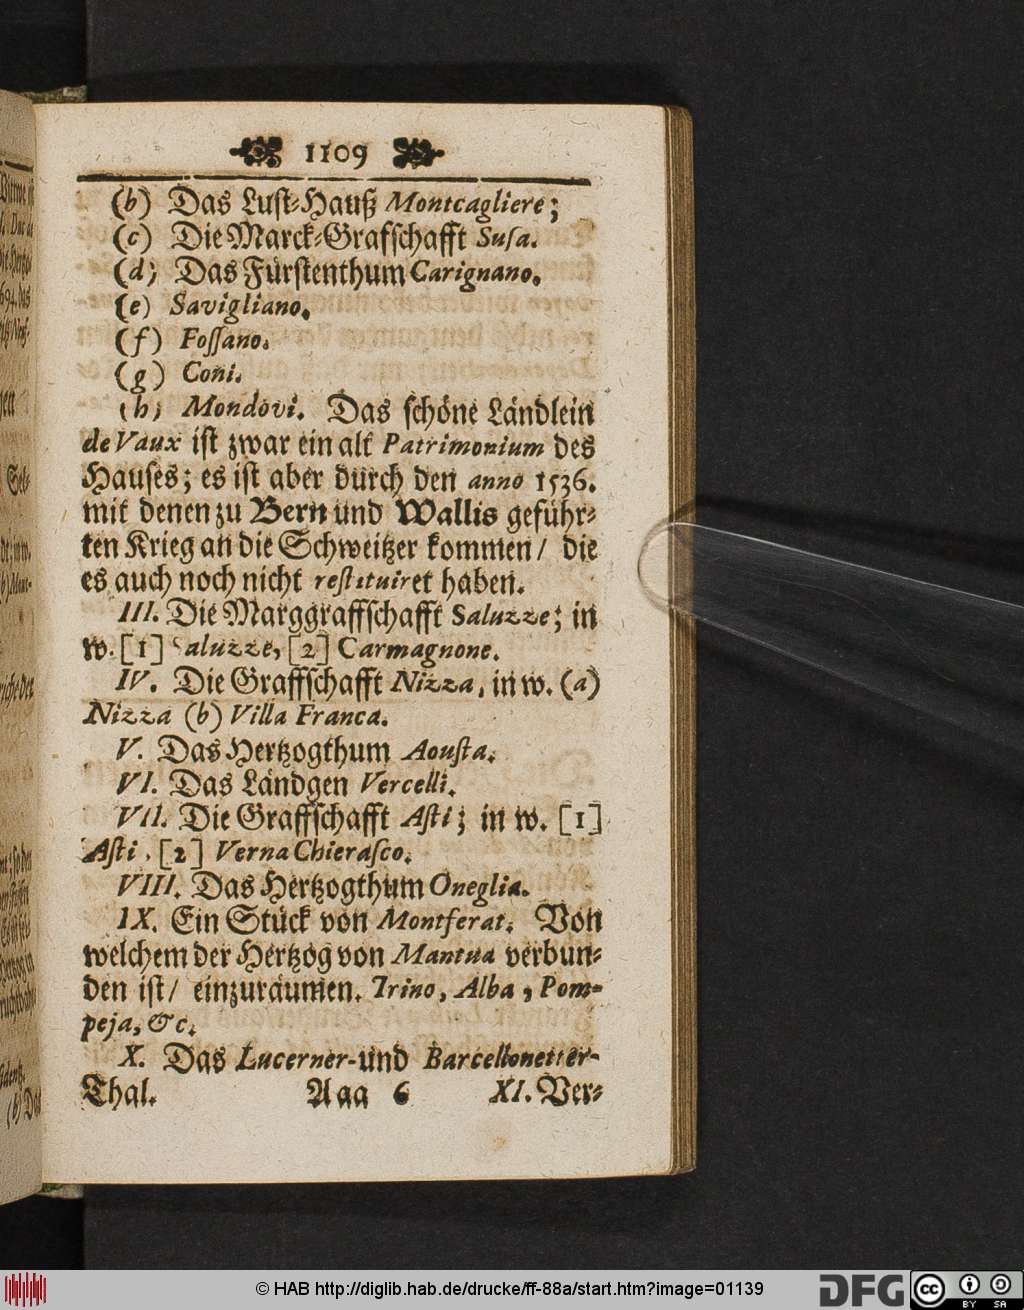 1109
(b) Das Lust-Hauß Montcagliere;
(c) Die Marck-Grafschafft Susa.
(d) Das Fürstenthum Carignano.
(e) Savigliano.
(f) Fossano.
(g) Coni.
(h) Mondovi. Das schöne Ländlein
de Vaux ist zwar ein alt Patrimonium des
Hauses; es ist aber durch den anno 1536.
mit denen zu Bern und Wallis geführ-
ten Krieg an die Schweitzer kommen/ die
es auch noch nicht restituiret haben.
III. Die Marggraffschafft Saluzze; in
w. [1] Saluzze, [2] Carmagnone.
IV. Die Graffschafft Nizza, in w. (a)
Nizza (b) Villa Franca.
V. Das Hertzogthum Aousta.
VI. Das Ländgen Vercelli.
VII. Die Graffschafft Asti; in w. [1]
Asti, [2] Verna Chierasco.
VIII. Das Hertzogthum Oneglia.
IX. Ein Stück von Montferat. Von
welchem der Hertzog von Mantua verbun-
den ist/ einzuräumen. Trino, Alba, Pom-
peja, &c.
X. Das Lucerner- und Barcellonetter-
Thal. Aaa 6 XI. Ver-
© HAB http://diglib.hab.de/drucke/ff-88a/start.htm?image=01139
DFG cc BY SA